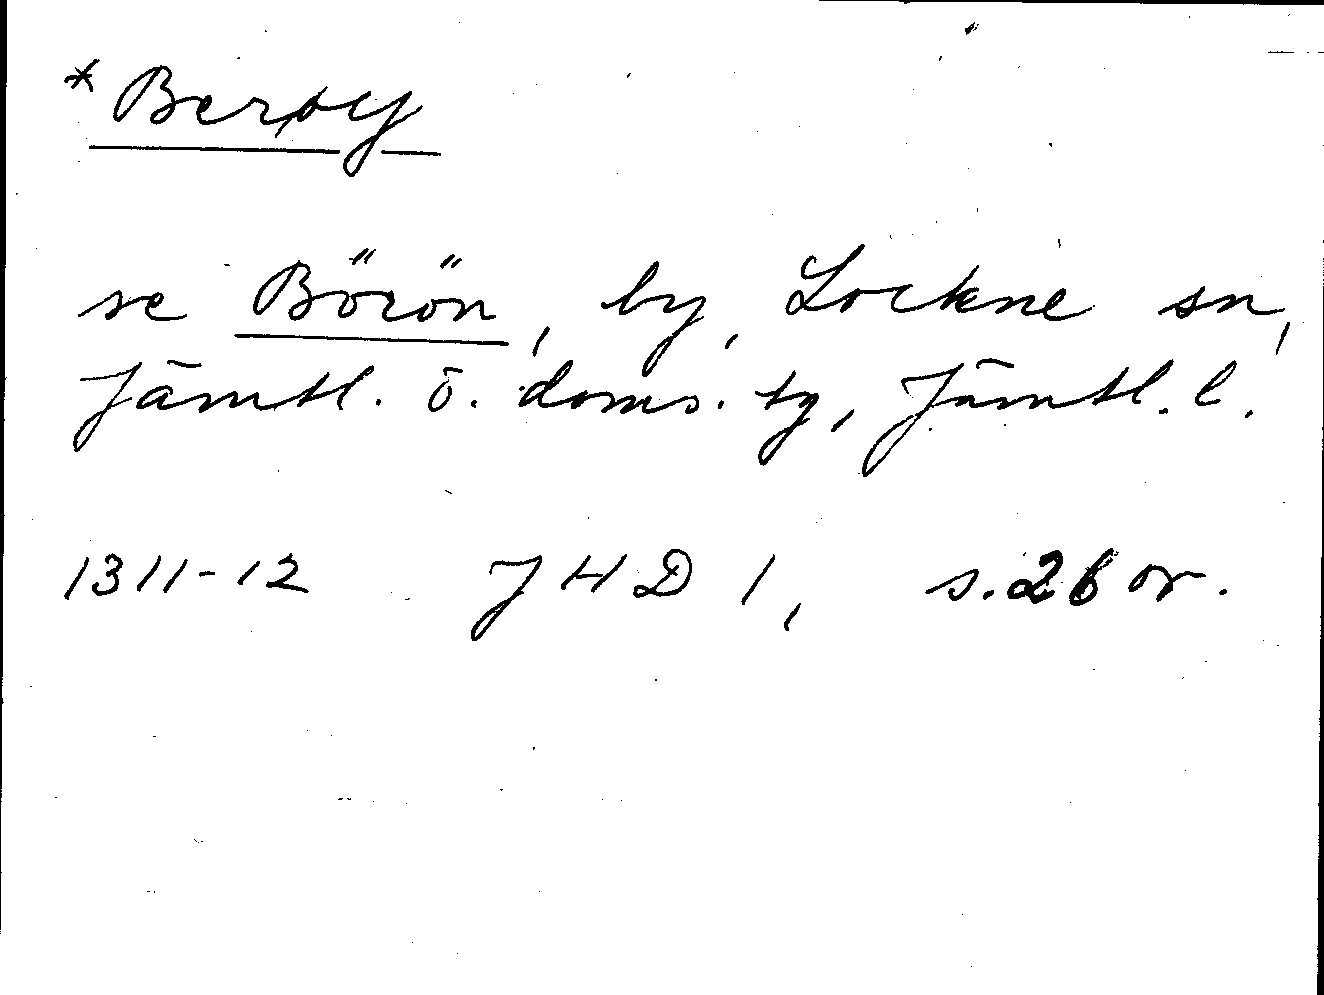 *Berøy
se Börön, by, Lockne sn,
Jämtl. ö. doms. tg, Jämtl. l.
1311-12 JHD 1, s. 26 or.